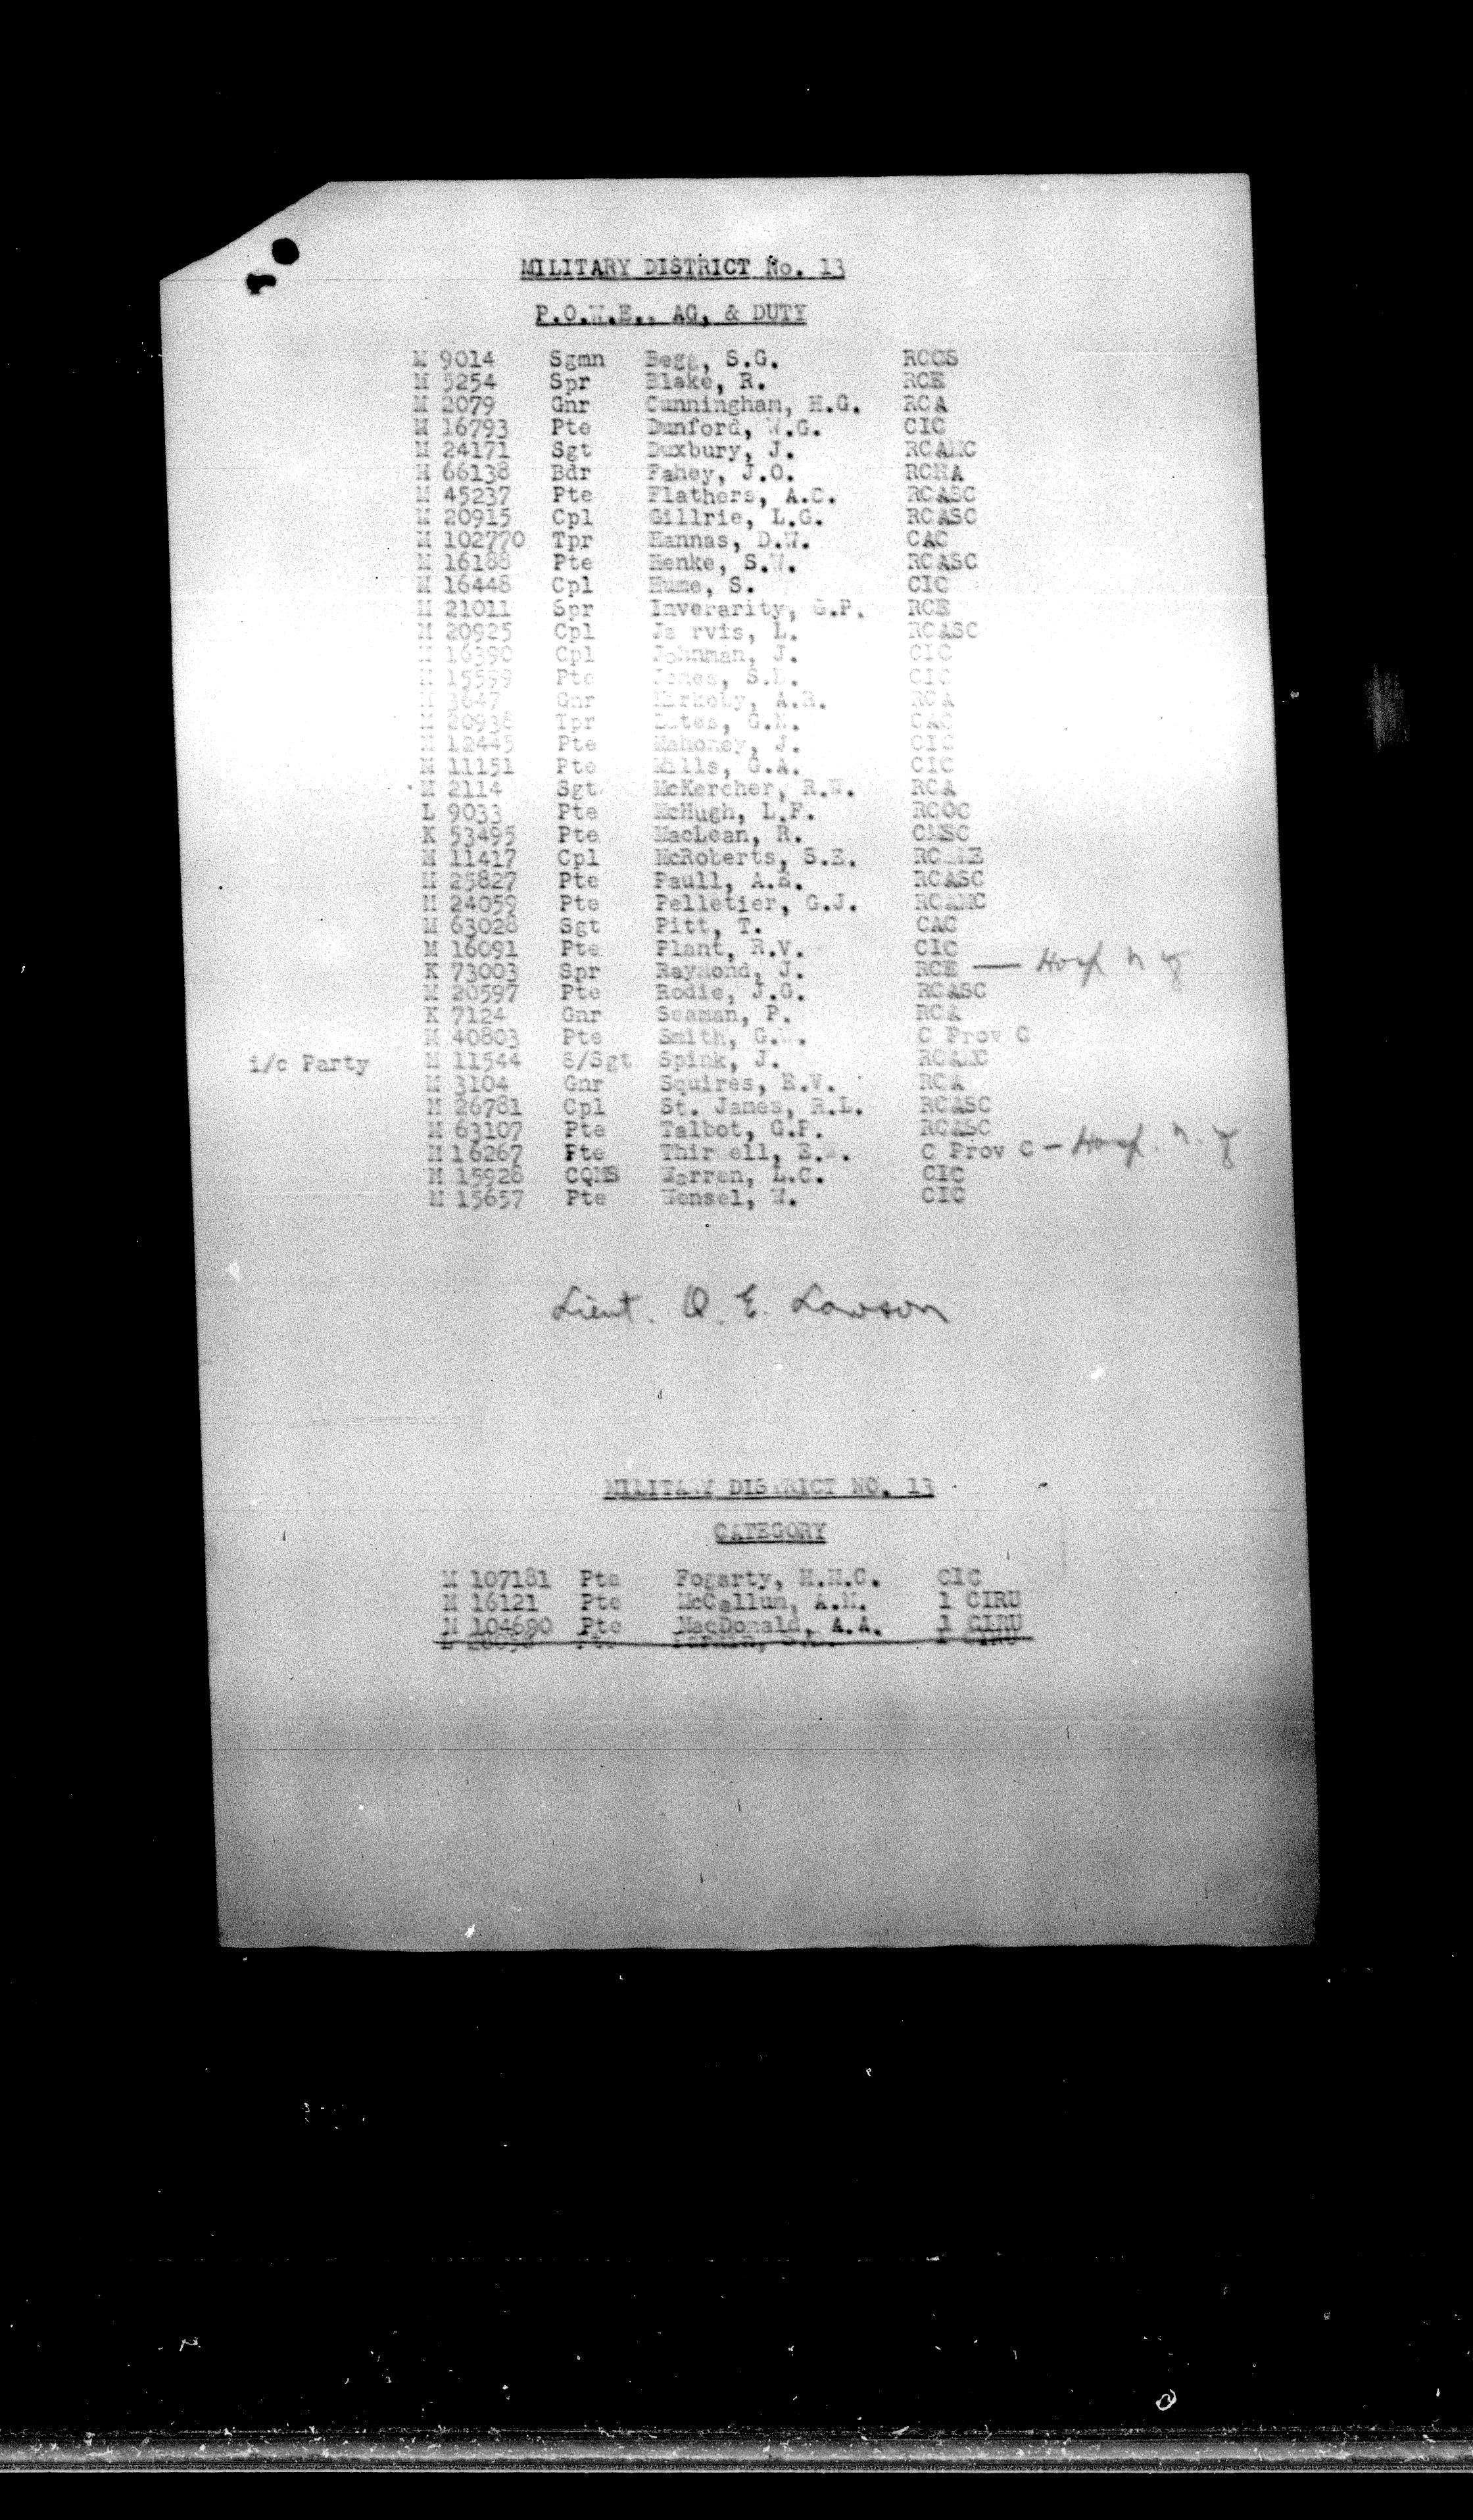 MILITARY DISTRICT No. 13
P.O.W.E., AG, & DUTY
M 9014 Sgmn Begg, S.G. RCCS
M 5254 Spr Blake, R. RCE
M 2079 Gnr Cunningham, H.G. RCA
M 16793 Pte Dunford, W.G. CIC
M 24171 Sgt Duxbury, J. RCAMC
H 66138 Bdr Fahey, J.O. RCHA
M 45237 Pte Flathers, A.C. RCASC
M 20915 Cpl Gillrie, L.G. RCASC
M 102770 Tpr Hannas, D.W. CAC
M 16188 Pte Henke, S.W. RCASC
M 16448 Cpl Hume, S. CIC
M 21011 Spr Inverarity, G.P. RCE
M 20925 Cpl Ja rvis, L. RCASC
M 16390 Cpl Johnman, J. CIC
M 15599 Pte Jones, CIC
M 3647 Gnr RCA
M 20938 Tpr CAC
M 12445 Pte Mahoney, J. CIC
M 11151 Pte Mills, G.A. CIC
M 2114 Sgt McKercher, R.W. RCA
L 9033 Pte McHugh, L.F. RCOC
K 53495 Pte MacLean, R. CMSC
M 11417 Cpl McRoberts, S.E.
M 25827 Pte Paull, A.E. RCASC
M 24059 Pte Pelletier, G.J. RCAMC
H 63028 Sgt Pitt, T. CAC
M 16091 Pte Plant, R.V. CIC
K 73003 Spr Raymond, J. RCE — Hosp N Y
M 20597 Pte Rodie, J.G. RCASC
K 7124 Gnr Seaman, P. RCA
M 40803 Pte Smith, C Prov C
i/c Party M 11544 S/Sgt Spink, J. RCAMC
M 3104 Gnr Squires, E.V. RCA
M 26781 Cpl St. James, R.L. RCASC
M 63107 Pte Talbot, G.P. RCASC
M 16267 Pte C Prov C — Hosp. N.Y
M 15928 CQMS Warren, L.C. CIC
M 15657 Pte Wensel, W. CIC
Lieut. O. E. Lawson
MILITARY DISTRICT NO. 13
CATEGORY
M 107181 Pte Fogarty, H.H.C. CIC
M 16121 Pte McCallum, A.M. 1 CIRU
M 104690 Pte MacDonald, A.A. 1 CIRU